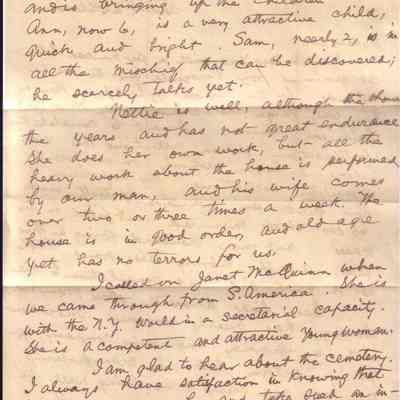 and is bringing up the children
Ann, now 6, is a very attractive child,
quick and bright. Sam, nearly 2, is in
all the mischief that can be discovered;
he scarcely talks yet.
Nettie is well, although she shows
the years and has not great endurance
She does her own work, but all the
heavy work about the house is performed
by our man, and his wife comes
over two or three times a week. The
house is in good order, and old age
yet has no terrors for us.
I called on Janet McQuinn when
we came through from S. America. She is
with the N.Y. World in a secretarial capacity.
She is a competent and attractive young woman.
I am glad to hear about the cemetery.
I always have satisfaction in knowing that
and take such an in-